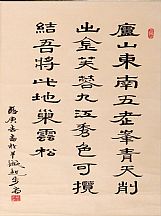 廬山東南五老峯青天削
出金芙蓉九江秀色可攬
結吾將此地巢雲松